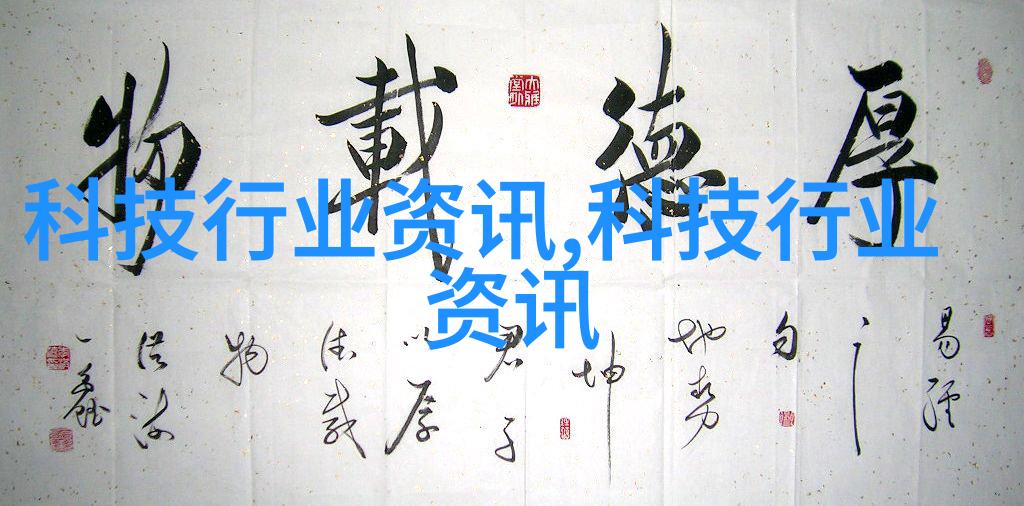 科技行业资讯,科技行业
资讯
厚德載物
易經
之
句
地勢
坤
君子
以厚
德载
物